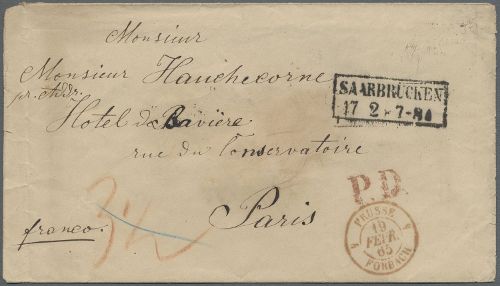 Monsieur
Monsieur Hauchecorne
pr. Addr.
Hotel de Bavière
rue du Conservatoire
Paris
franco.
SAARBRÜCKEN
17 2 * 7-8
P.D.
PRUSSE
19
FEVR.
65
FORBACH
4 4